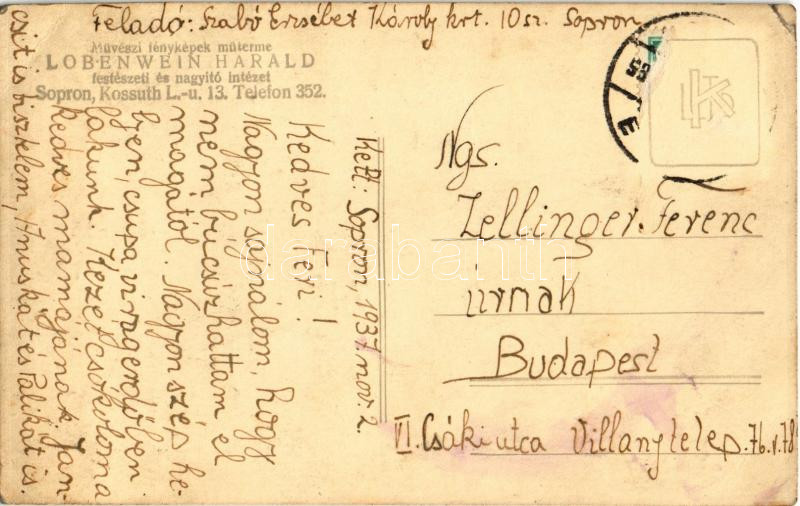 Feladó: Szabó Erzsébet Károly krt. 10 sz. Sopron
Művészi fényképek műterme
LOBENWEIN HARALD
festészeti és nagyító intézet
Sopron, Kossuth L.-u. 13. Telefon 352.
Kelt: Sopron, 1937. nov. 2.
Kedves Feri!
Nagyon sajnálom, hogy
nem búcsúzhattam el
magától. Nagyon szép he-
lyen, csupa virágerdőben
lakunk. Kezét csókolom a
kedves mamájának. Jan-
csit is tisztelem, Annuskát és Palikát is.
Ngs.
Zellinger Ferenc
úrnak
Budapest
VI. Csáki utca Villanytelep. 76. v. 78
darabanth